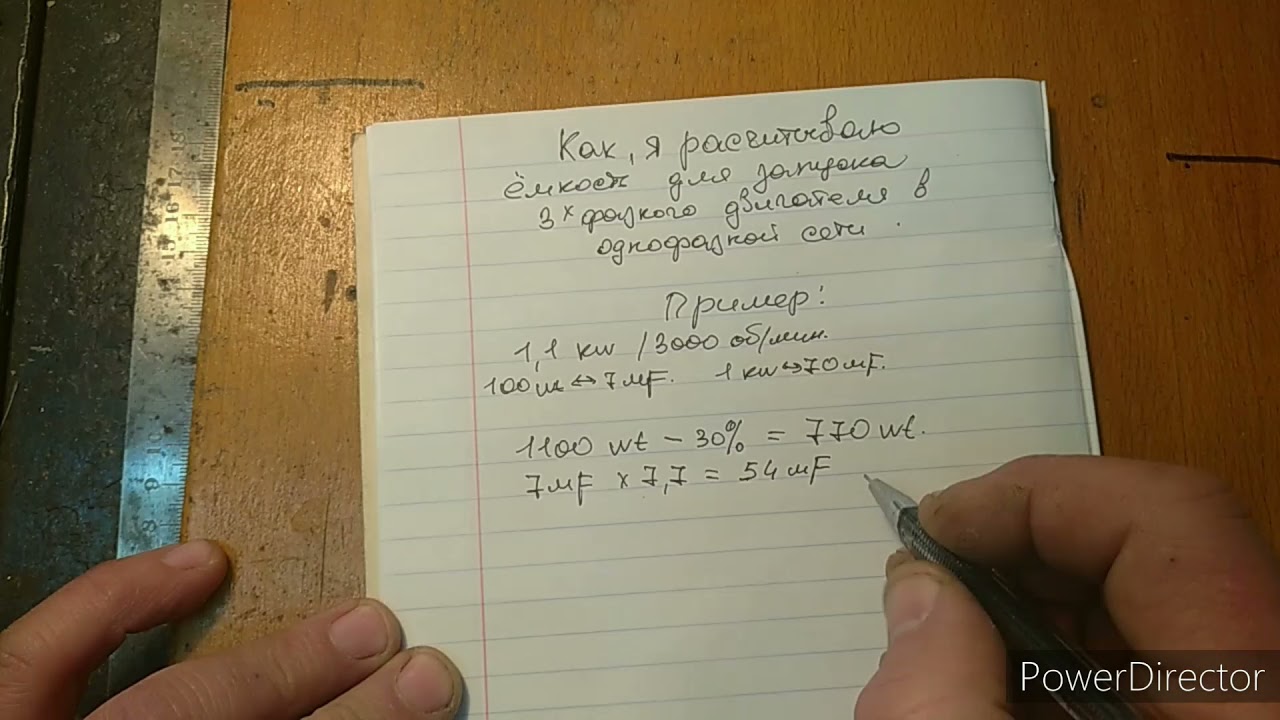 Как, я расчитываю
ёмкость для запуска
3х фазного двигателя в
однофазной сети.
Пример:
1,1 kw / 3000 об/мин.
100 wt ↔ 7 мF. 1 kw ↔ 70 мF.
1100 wt – 30% = 770 wt.
7 мF х 7,7 = 54 мF
18
17
16
15
10
9
8
PowerDirector